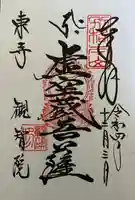 奉拝
令和四年
十二月三日
虚空蔵菩薩
東寺
観智院